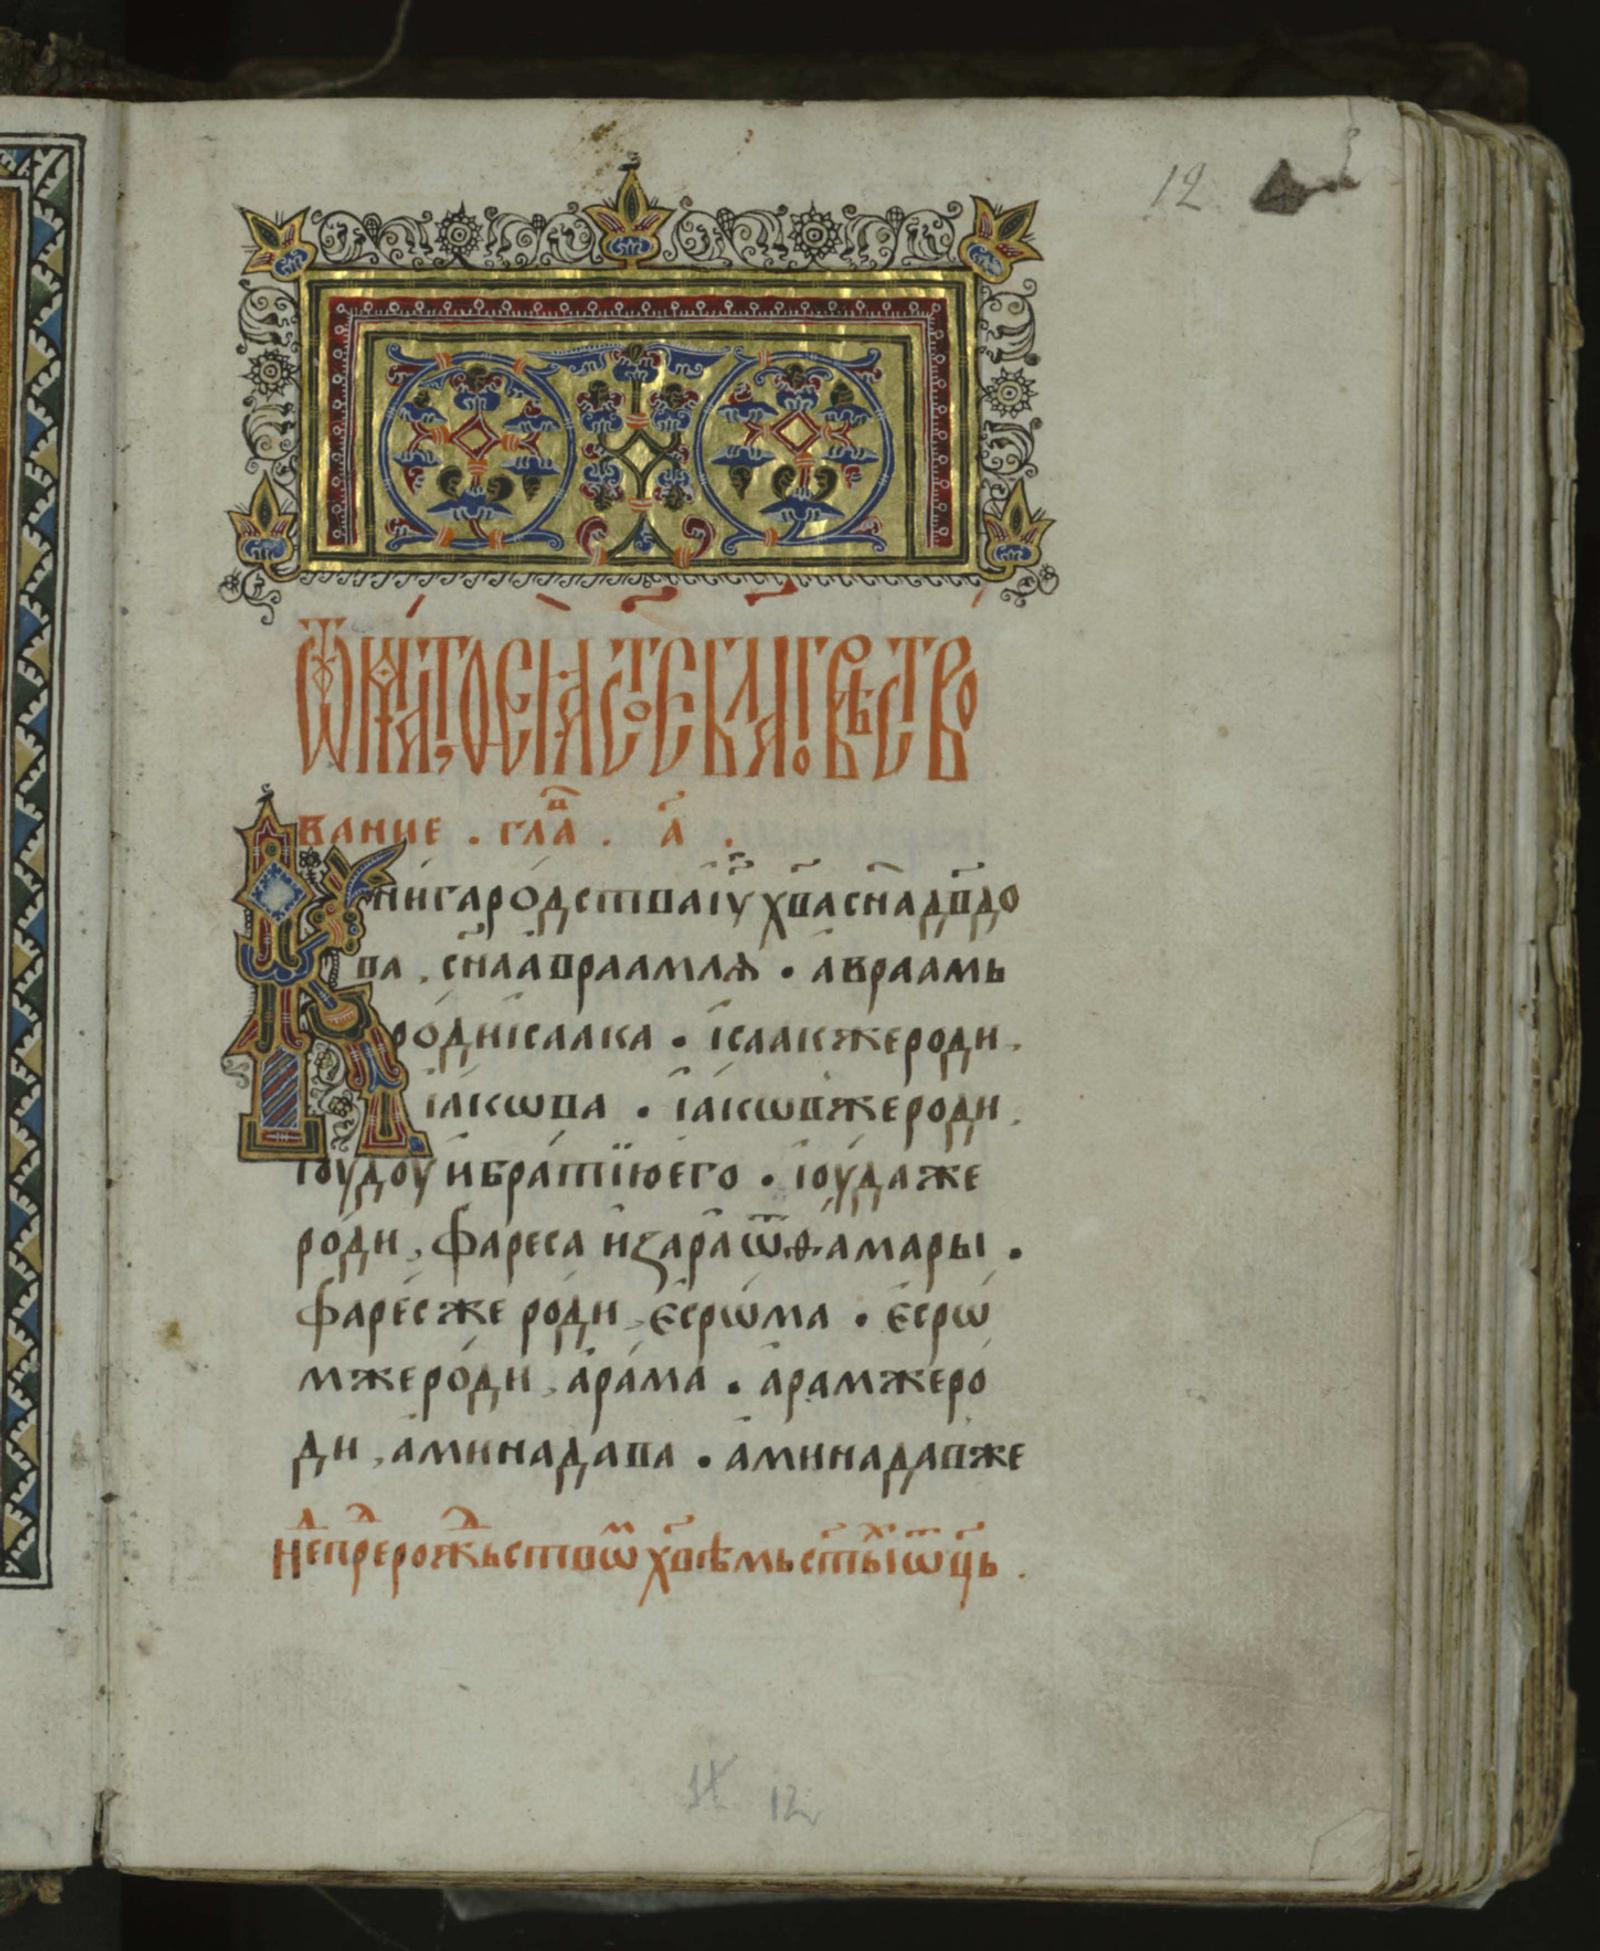 12
Ѿ матѳеа ст҃ое бл҃говѣство
вание . глав҃ . а҃ .
Книга ро́дства і҆у҃ хв҃а сн҃а дв҃до
ва , сн҃а а҆враамлѧ • а҆враамь
ро́ди і҆саака • і҆саак же роди ,
і҆а́кѡва • і҆а́кѡв же роди ,
і҆оу́доу и бра́тїю его • і҆оу́да же
ро́ди , фареса и҆ зара ѿ ѳамары •
фаре́с же ро́ди , е҆срѡ́ма • е҆срѡ́
м же ро́ди , а҆ра́ма • а҆рам же ро́
ди , а҆минадава • а҆минадав же
не҃д пре҃д рожⷣьством хв҃ѣмь ст҃ых ѿць .
12